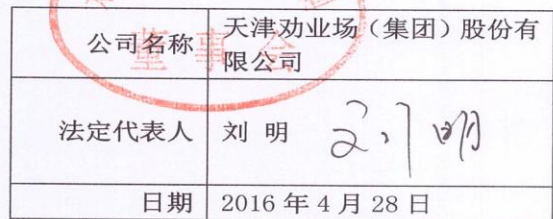 公司名称
天津劝业场（集团）股份有
限公司
董事会
法定代表人
刘 明
刘明
日期
2016 年 4 月 28 日